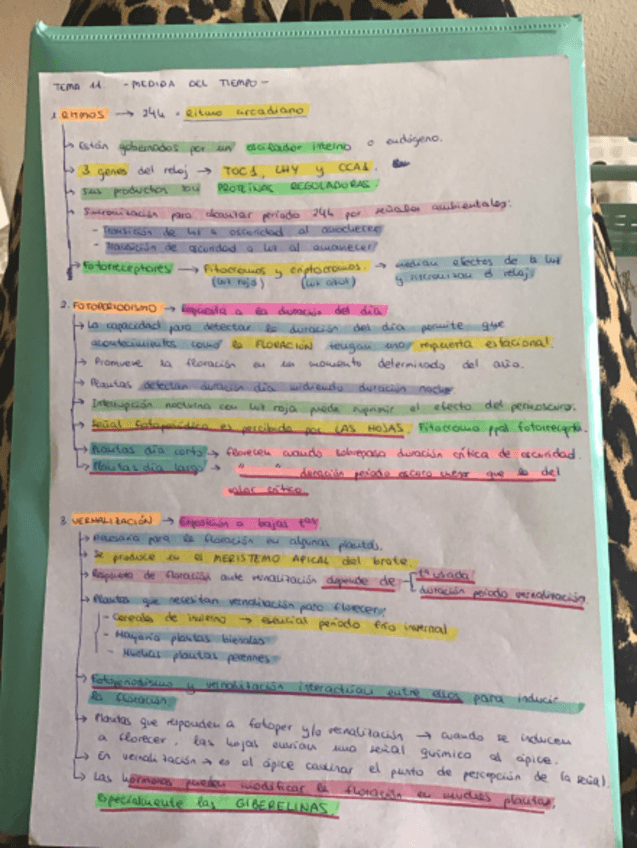 TEMA 11. - MEDIDA DEL TIEMPO -
1. RITMOS → 24h = Ritmo circadiano
→ Están gobernados por un oscilador interno o endógeno.
→ 3 genes del reloj → TOC1, LHY y CCA1.
→ Sus productos son PROTEÍNAS REGULADORAS.
→ Sincronización para alcanzar período 24h por señales ambientales:
- Transición de luz a oscuridad al anochecer
- Transición de oscuridad a luz al amanecer
→ Fotorreceptores → Fitocromos y criptocromos. → median efectos de la luz
(luz roja) (luz azul) y sincronizan el reloj.
2. FOTOPERIODISMO → Respuesta a la duración del día
→ La capacidad para detectar la duración del día permite que
acontecimientos como la FLORACIÓN tengan una respuesta estacional.
→ Promueve la floración en un momento determinado del año.
→ Plantas detectan duración día midiendo duración noche
→ Interrupción nocturna con luz roja puede suprimir el efecto del
→ Señal fotoperiódica es percibida por LAS HOJAS. Fitocromo ppal fotorrecept.
→ Plantas día corto → florecen cuando sobrepasa duración crítica de oscuridad.
→ Plantas día largo → " " duración período oscuro menor que la del
valor crítico
3. VERNALIZACIÓN → Exposición a bajas tas
→ Necesaria para la floración en algunas plantas.
→ Se produce en el MERISTEMO APICAL del brote.
→ Respuesta de floración ante vernalización depende de - tª usada
duración período vernalización.
→ Plantas que necesitan vernalización para florecer:
- Cereales de invierno → esencial período frío invernal
- Mayoría plantas bienales
- Muchas plantas perennes
→ Fotoperiodismo y vernalización interactúan entre ellos para inducir
la floración.
→ Plantas que responden a fotoper y/o vernalización → cuando se inducen
a florecer, las hojas envían una señal química al ápice.
→ En vernalización → es el ápice caulinar el punto de percepción de la señal.
→ Las hormonas pueden modificar la floración en muchas plantas,
especialmente las GIBERELINAS.